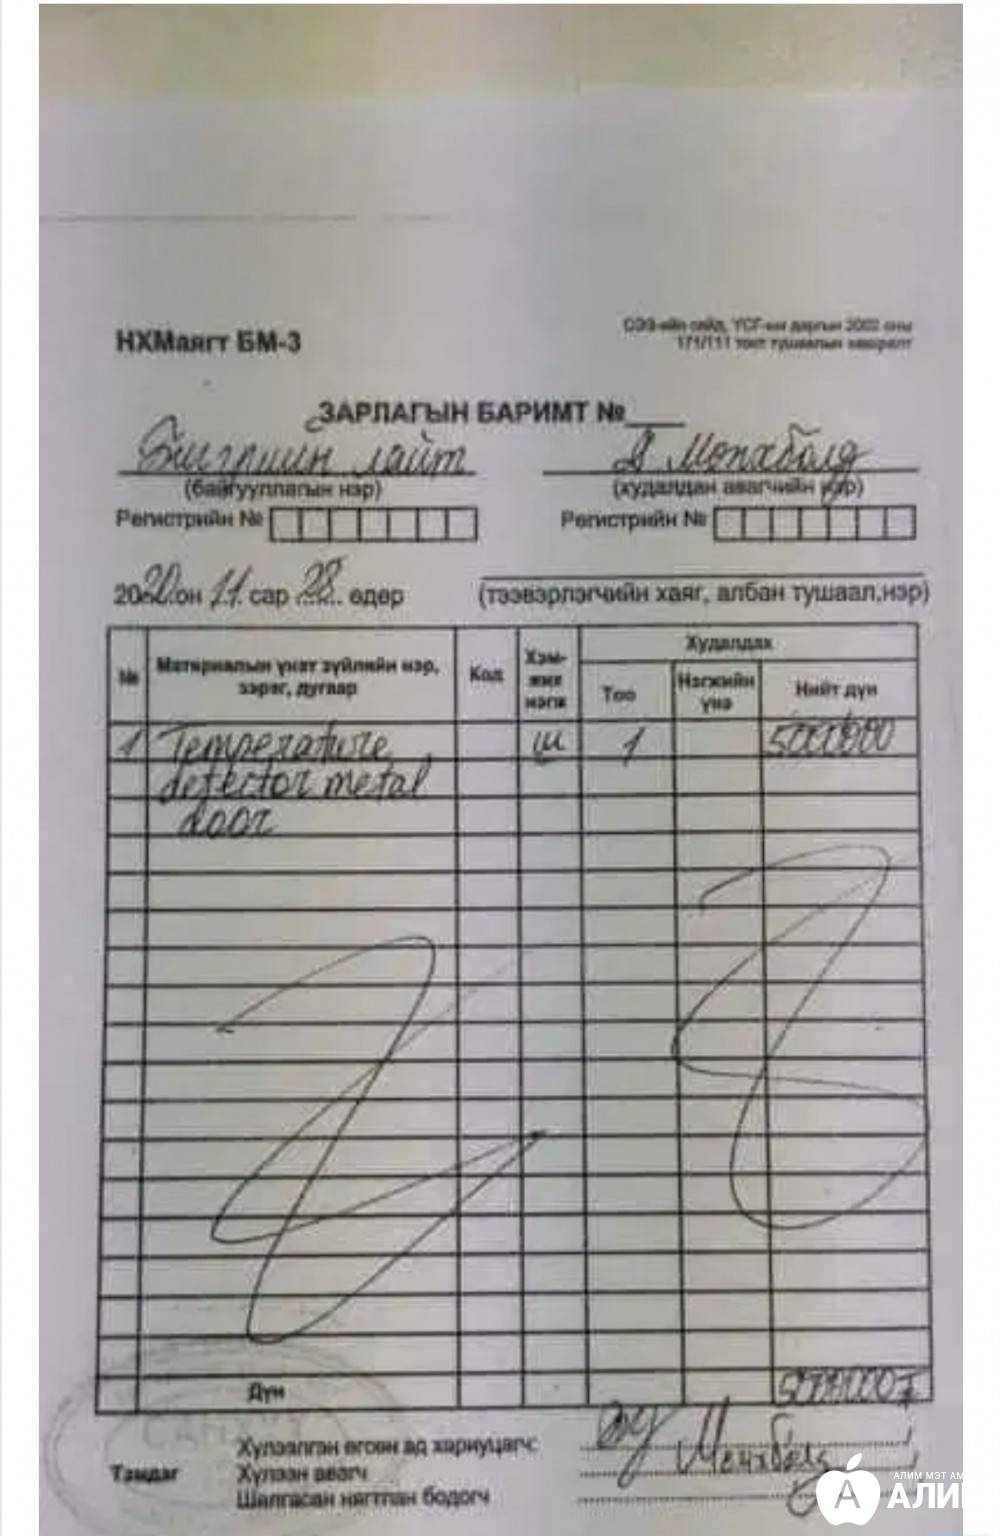 НХМаягт БМ-3
СЭЗ-ийн сайд, ҮСГ-ын даргын 2002 оны
171/111 тоот тушаалын хавсралт
ЗАРЛАГЫН БАРИМТ №
лайт
Д Мөнхболд
(байгууллагын нэр)
(худалдан авагчийн нэр)
Регистрийн №
Регистрийн №
2020 он 11 сар 28 өдөр
(тээвэрлэгчийн хаяг, албан тушаал,нэр)
№
Материалын үнэт зүйлийн нэр, зэрэг, дугаар
Код
Хэм-жих нэгж
Худалдах
Тоо
Нэгжийн үнэ
Нийт дүн
1 Temperature ш 1
detector metal
door
Дүн
Тэмдэг
Хүлээлгэн өгсөн эд хариуцагч:
Хүлээн авагч Мөнхболд
Шалгасан нягтлан бодогч
АЛИМ МЭТ АМ
АЛИМ